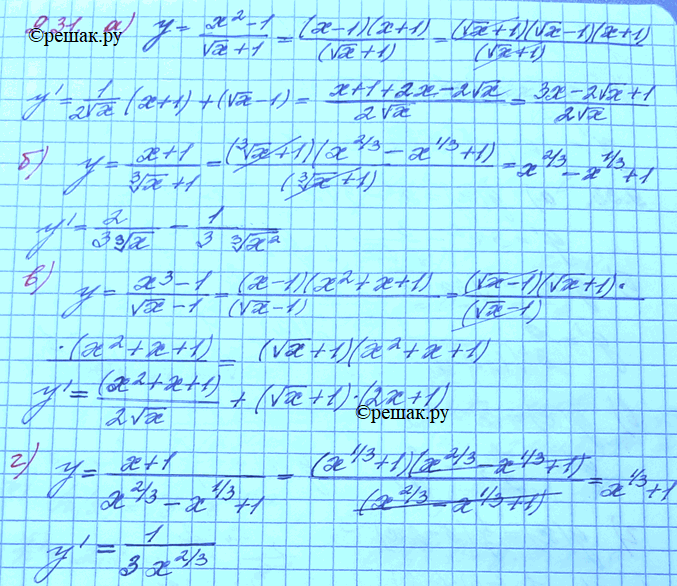 931 а) y = (x² − 1)/(√x + 1) = (x−1)(x+1)/(√x+1) = (√x+1)(√x−1)(x+1)/(√x+1)
©решак.ру
y' = 1/(2√x) (x+1) + (√x−1) = (x+1+2x−2√x)/(2√x) = (3x−2√x+1)/(2√x)
б) y = (x+1)/(∛x+1) = (∛x+1)(x^(2/3) − x^(1/3) + 1)/(∛x+1) = x^(2/3) − x^(1/3) + 1
y' = 2/(3∛x) − 1/(3 ∛x²)
в) y = (x³−1)/(√x−1) = (x−1)(x²+x+1)/(√x−1) = (√x−1)(√x+1)·/(√x−1)
·(x²+x+1) = (√x+1)(x²+x+1)
y' = (x²+x+1)/(2√x) + (√x+1)·(2x+1)
©решак.ру
г) y = (x+1)/(x^(2/3) − x^(1/3) + 1) = (x^(1/3)+1)(x^(2/3) − x^(1/3) + 1)/(x^(2/3) − x^(1/3) + 1) = x^(1/3) + 1
y' = 1/(3 x^(2/3))